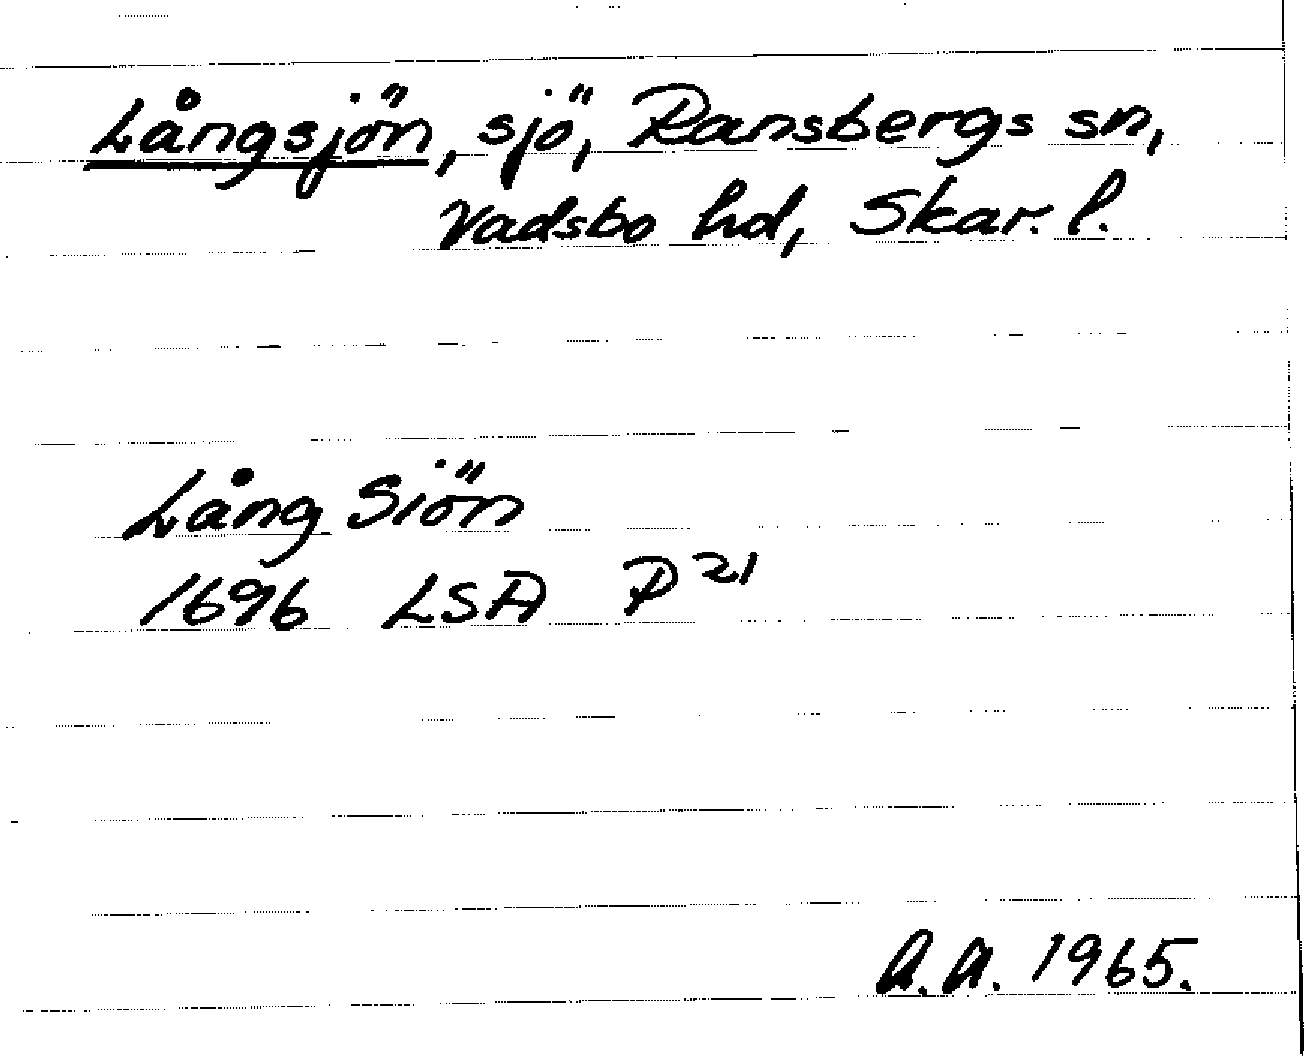 Långsjön, sjö, Ransbergs sn,
Vadsbo hd, Skar. l.
Lång Siön
1696 LSA P 21
A.A. 1965.